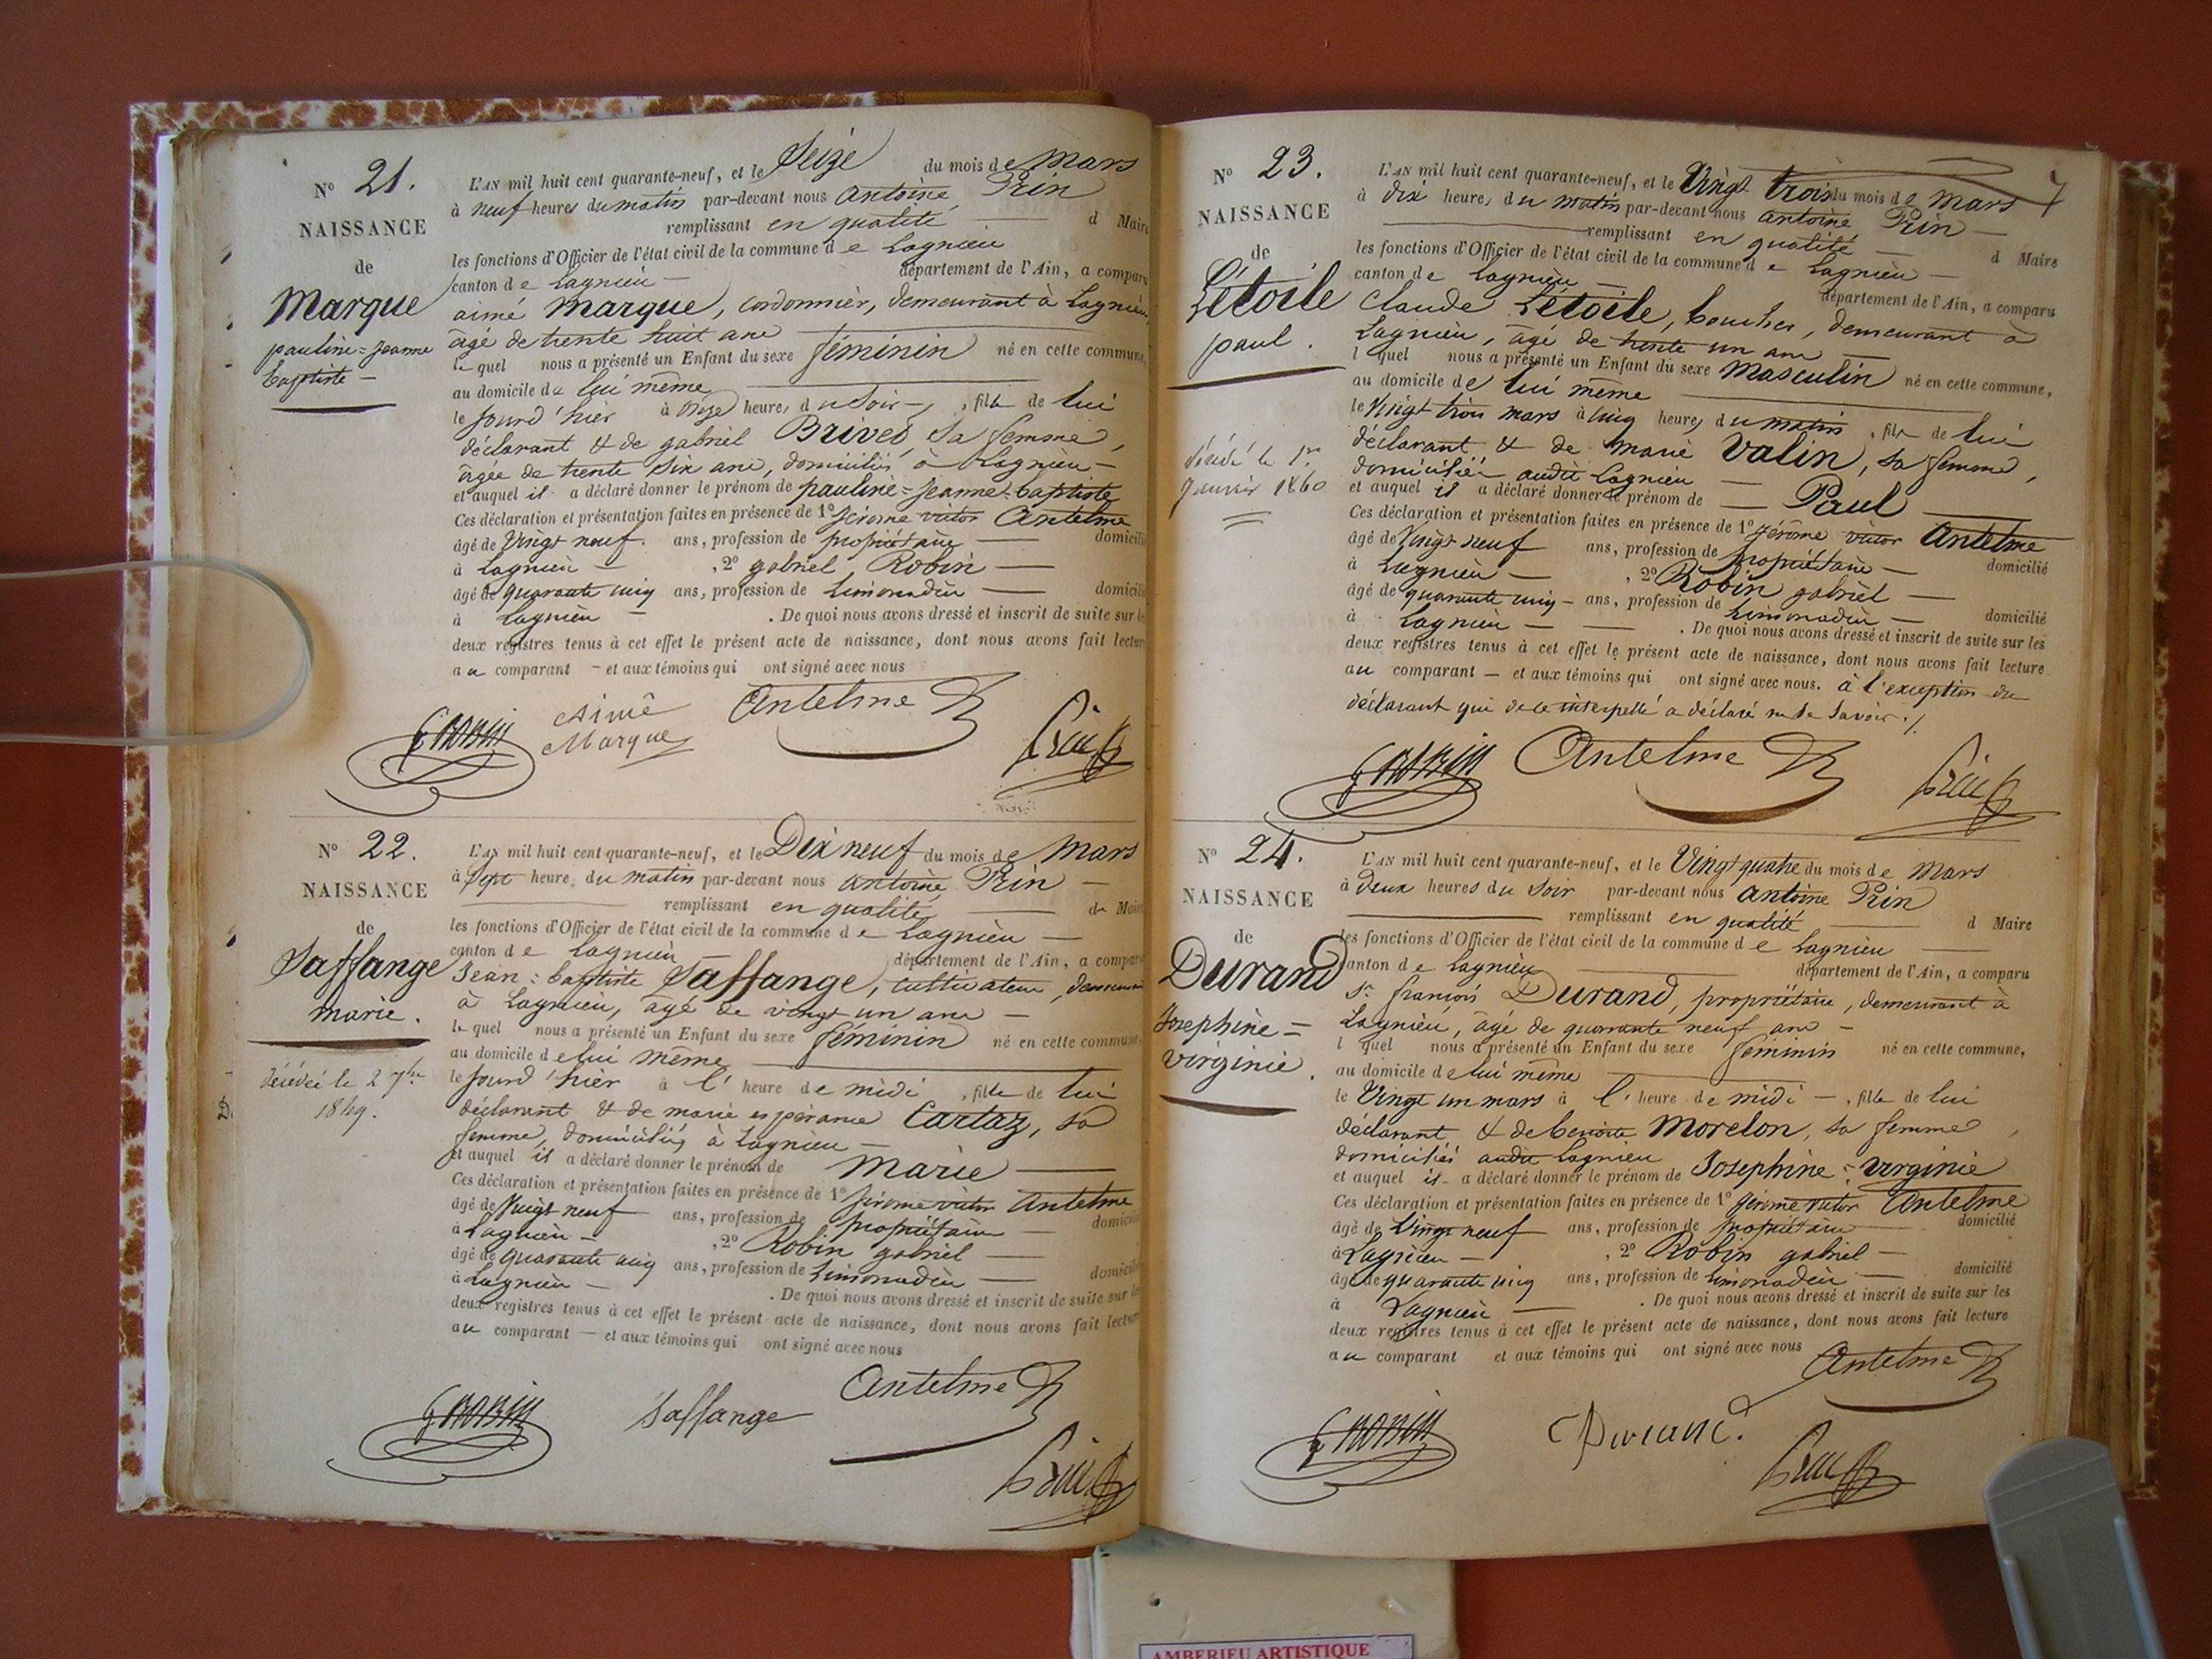 N° 21.
NAISSANCE
de
Marque
pauline=jeanne
baptiste -
L'AN mil huit cent quarante-neuf, et le Seize du mois de Mars
à neuf heures du matin par-devant nous antoine Prin
remplissant en qualité d Maire
les fonctions d'Officier de l'état civil de la commune de Lagnieu
canton de Lagnieu - département de l'Ain, a comparu
aimé Marque, cordonnier, demeurant à Lagnieu,
âgé de trente huit ans
lequel nous a présenté un Enfant du sexe féminin né en cette commune,
au domicile de lui même
le jourd'hier à onze heures du soir -, fille de lui
déclarant & de gabriel Brives, sa femme,
âgée de trente six ans, domiciliés à Lagnieu -
et auquel il a déclaré donner le prénom de pauline=jeanne=baptiste
Ces déclaration et présentation faites en présence de 1° jérome victor Antelme
âgé de vingt neuf. ans, profession de propriétaire - domicilié
à Lagnieu - , 2° gabriel Robin -
âgé de quarante cinq ans, profession de Limonadier - domicilié
à Lagnieu - . De quoi nous avons dressé et inscrit de suite sur les
deux registres tenus à cet effet le présent acte de naissance, dont nous avons fait lecture
au comparant - et aux témoins qui ont signé avec nous
G. ROBIN Aimé Marque Antelme Prin
N° 22.
NAISSANCE
de
Saffange
marie.
décédée le 2 7bre
1849.
D.
L'AN mil huit cent quarante-neuf, et le Dix neuf du mois de Mars
à Sept heure du matin par-devant nous antoine Prin -
remplissant en qualité de Maire
les fonctions d'Officier de l'état civil de la commune de Lagnieu -
canton de Lagnieu - département de l'Ain, a comparu
Jean=baptiste Saffange, cultivateur, demeurant
à Lagnieu, âgé de vingt un ans -
lequel nous a présenté un Enfant du sexe féminin né en cette commune,
au domicile de lui même
le jourd'hier à l'heure de midi , fille de lui
déclarant & de marie espérance Cartaz, sa
femme, domiciliés à Lagnieu -
et auquel il a déclaré donner le prénom de Marie
Ces déclaration et présentation faites en présence de 1° jérome victor Antelme
âgé de Vingt neuf ans, profession de propriétaire domicilié
à Lagnieu - , 2° Robin gabriel -
âgé de quarante cinq ans, profession de Limonadier - domicilié
à Lagnieu - . De quoi nous avons dressé et inscrit de suite sur les
deux registres tenus à cet effet le présent acte de naissance, dont nous avons fait lecture
au comparant - et aux témoins qui ont signé avec nous
G. ROBIN Saffange Antelme Prin
7
N° 23.
NAISSANCE
de
Létoile
paul.
décédé le 1er
Janvier 1860
L'AN mil huit cent quarante-neuf, et le Vingt trois du mois de Mars
à dix heures du matin par-devant nous antoine Prin -
remplissant en qualité d Maire
les fonctions d'Officier de l'état civil de la commune de Lagnieu -
canton de Lagnieu - département de l'Ain, a comparu
Claude Létoile, boucher, demeurant à
Lagnieu, âgé de trente un ans -
lquel nous a présenté un Enfant du sexe Masculin né en cette commune,
au domicile de lui même
le Vingt trois mars à cinq heures du matin , fils de lui
déclarant, & de marie Valin, sa femme,
domiciliés audit Lagnieu -
et auquel il a déclaré donner le prénom de - Paul
Ces déclaration et présentation faites en présence de 1° jérôme victor Antelme
âgé de Vingt neuf ans, profession de propriétaire - domicilié
à Lagnieu - , 2° Robin gabriel -
âgé de quarante cinq - ans, profession de Limonadier - domicilié
à Lagnieu - . De quoi nous avons dressé et inscrit de suite sur les
deux registres tenus à cet effet le présent acte de naissance, dont nous avons fait lecture
au comparant - et aux témoins qui ont signé avec nous. à l'exception du
déclarant qui de ce interpellé a déclaré ne le savoir./.
G. ROBIN Antelme Prin
N° 24.
NAISSANCE
de
Durand
Josephine=
virginie.
L'AN mil huit cent quarante-neuf, et le Vingt quatre du mois de Mars
à Deux heures du Soir par-devant nous antoine Prin
remplissant en qualité d Maire
les fonctions d'Officier de l'état civil de la commune de Lagnieu
canton de Lagnieu département de l'Ain, a comparu
Sr françois Durand, propriétaire, demeurant à
Lagnieu, âgé de quarante neuf ans -
lquel nous a présenté un Enfant du sexe féminin né en cette commune,
au domicile de lui même
le Vingt un mars à l'heure de midi - , fille de lui
déclarant & de benoite Morelon, sa femme,
domiciliés audit Lagnieu
et auquel il - a déclaré donner le prénom de Josephine=virginie
Ces déclaration et présentation faites en présence de 1° jérome victor Antelme
âgé de Vingt neuf ans, profession de propriétaire domicilié
à Lagnieu - , 2° Robin gabriel -
âgé de quarante cinq ans, profession de Limonadier - domicilié
à Lagnieu - . De quoi nous avons dressé et inscrit de suite sur les
deux registres tenus à cet effet le présent acte de naissance, dont nous avons fait lecture
au comparant et aux témoins qui ont signé avec nous
G. ROBIN Durand. Antelme Prin
AMBERIEU ARTISTIQUE